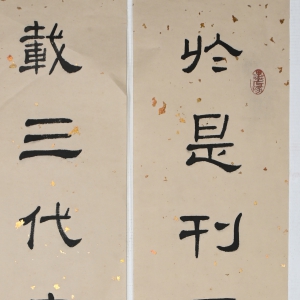 於是刊
載三代